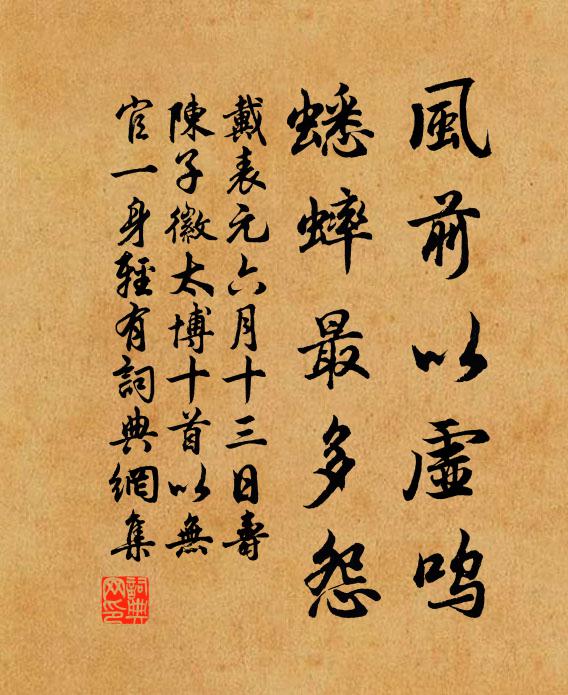 風前以虛鳴
蟋蟀最多怨
戴表元六月十三日壽
陳子徽太博十首以無
官一身輕有詞典網集
詞典
网印